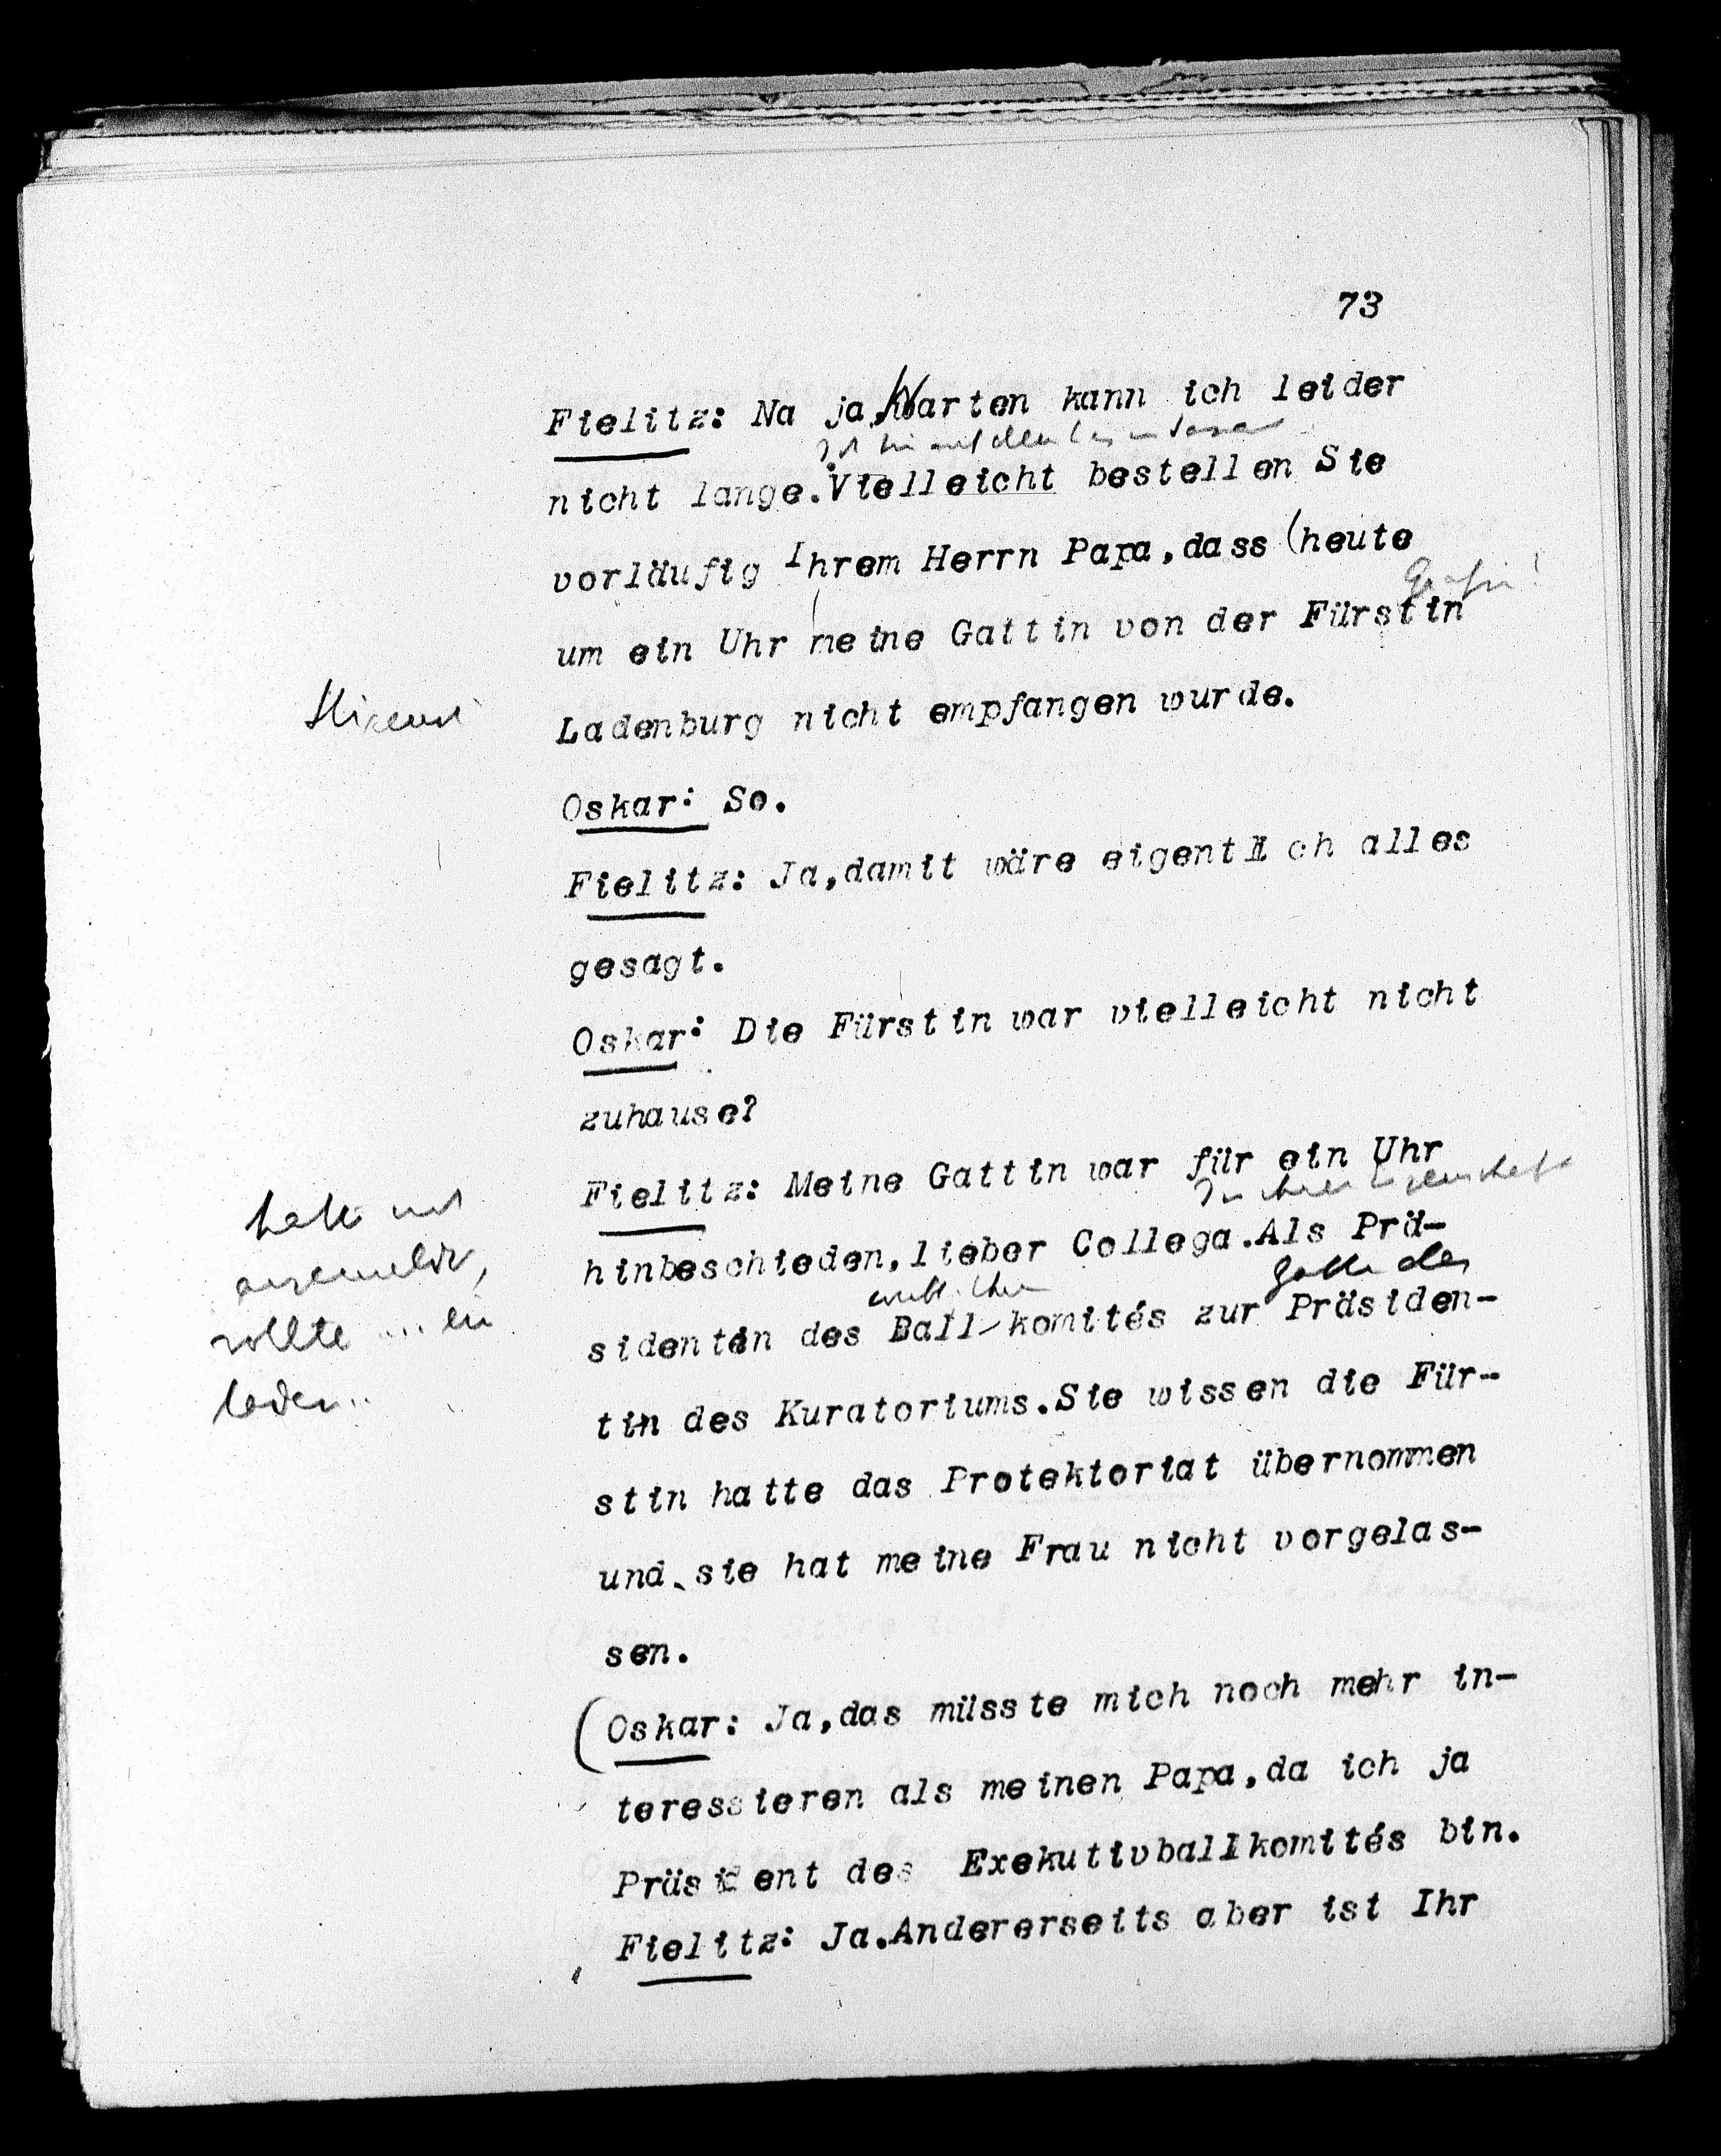 73
Fielitz: Na ja, Warten kann ich leider
nicht lange. Vielleicht bestellen Sie
vorläufig Ihrem Herrn Papa, dass (heute
Gräfin!
um ein Uhr meine Gattin von der Fürstin
Ladenburg nicht empfangen wurde.
Oskar: So.
Fielitz: Ja, damit wäre eigentlich alles
gesagt.
Oskar: Die Fürstin war vielleicht nicht
zuhause?
Fielitz: Meine Gattin war für ein Uhr
In ihrer Eigenschaft
hinbeschieden, lieber Collega. Als Prä-
Gattin des
sidentin des Ball-komités zur Präsiden-
tin des Kuratoriums. Sie wissen die Für-
stin hatte das Protektoriat übernommen
und sie hat meine Frau nicht vorgelas-
sen.
(Oskar: Ja, das müsste mich noch mehr in-
teressieren als meinen Papa, da ich ja
Präsident des Exekutivballkomités bin.
Fielitz: Ja. Andererseits aber ist Ihr
hatte
angemeldet,
wollte ... ein
laden..